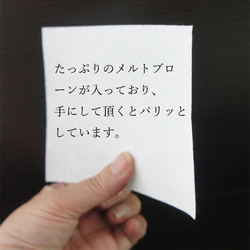 たっぷりのメルトブロ
ーンが入っており、
手にして頂くとパリッと
しています。